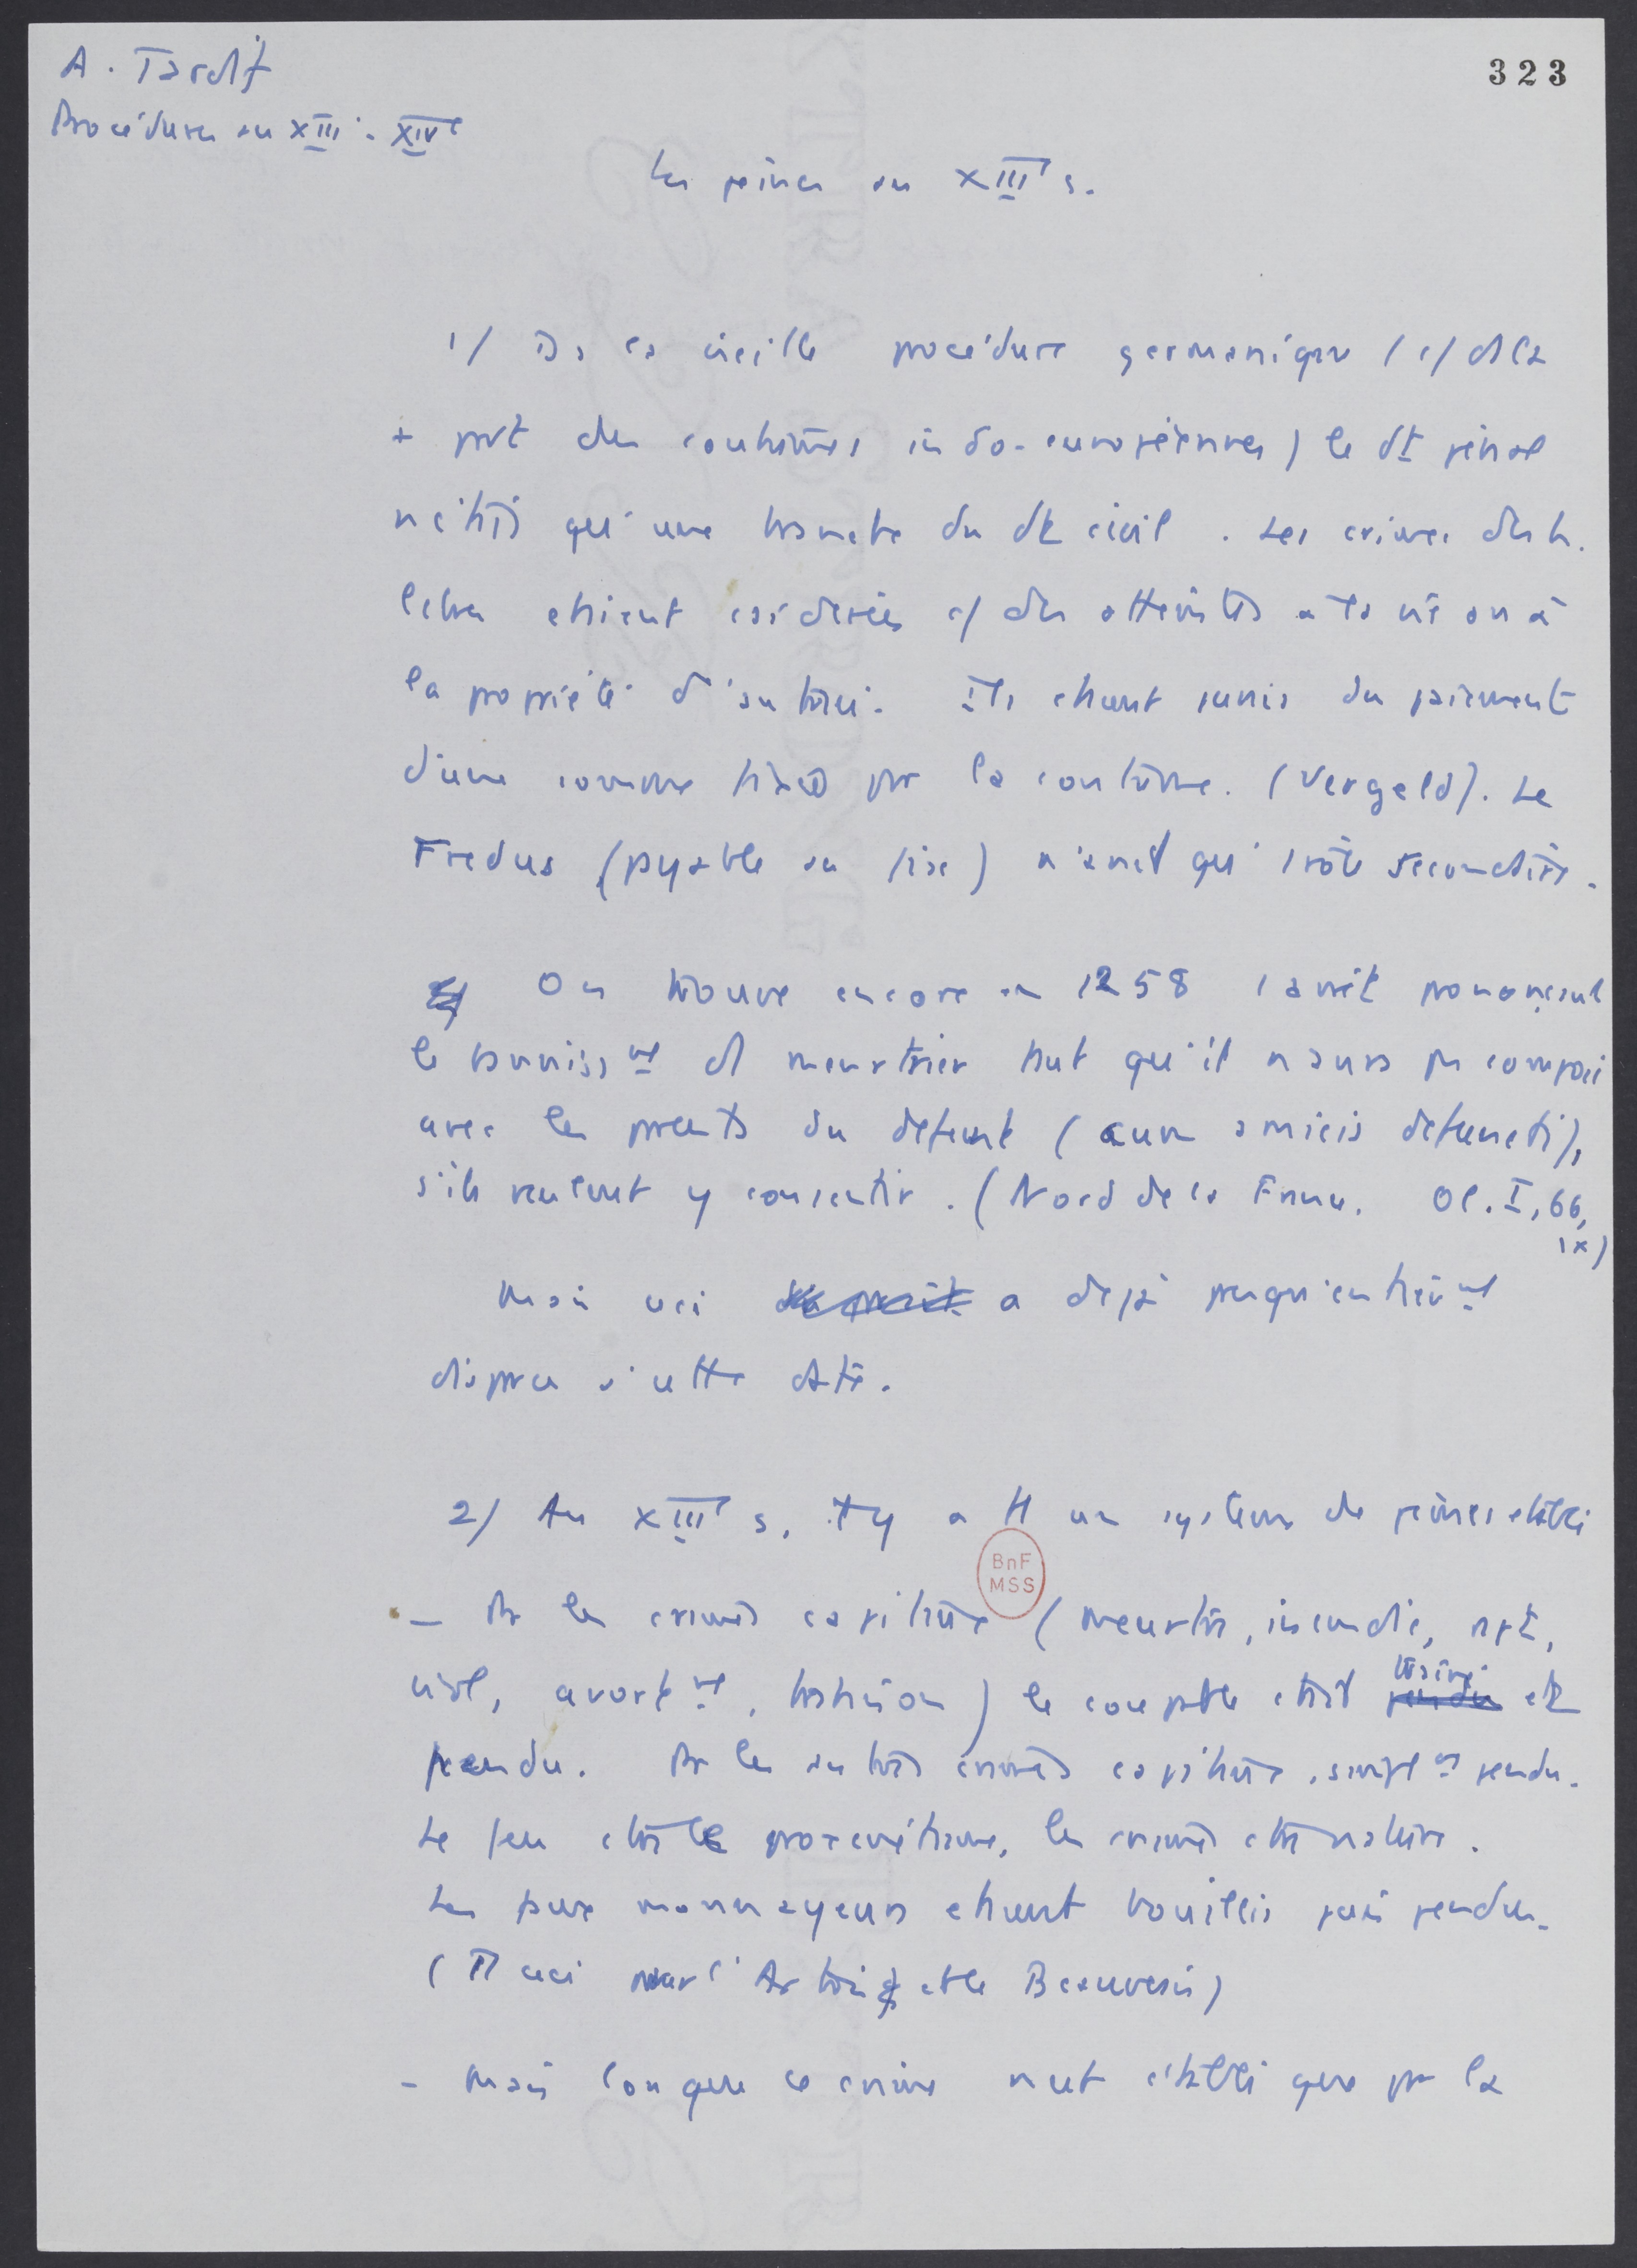 A. Tardif
323
Procédures au XIIIe - XIVe
Les peines au XIIIe s.
1/ Ds la vieille procédure germanique (c/ ds la
+ part des coutumes indo-européennes) le dt pénal
n'était qu'une branche du dt civil. Les crimes des h.
libres étaient considérés c/ des atteintes à la vie ou à
la propriété d'autrui. Ils étaient punis du paiement
d'une somme fixée par la coutume. (Vergeld). Le
Fredus (payable au fisc) n'avait qu'1 rôle secondaire.
On trouve encore en 1258 1 arrêt prononçant
le bannissmt d' meurtrier tant qu'il n'aura pas composé
avec les parents du défunt (cum amicis defuncti),
s'ils veulent y consentir. (Nord de la France. Ol. I, 66,
IX)
Mais ceci a déjà presqu'entièremt
disparu à cette date.
2/ Au XIIIe s. il y a tt un système de peines établi
- Pr les crimes capitaux (meurtre, incendie, rapt,
viol, avortemt, trahison) le coupable était traîné et
pendu. Pr les autres crimes capitaux, simplemt pendu.
Le feu était pr les crimes
Les faux monnayeurs étaient bouillis puis pendus.
(Tt ceci pour l'Artois et le Beauvaisis)
- Mais lorsque ce crime n'est établi que par la